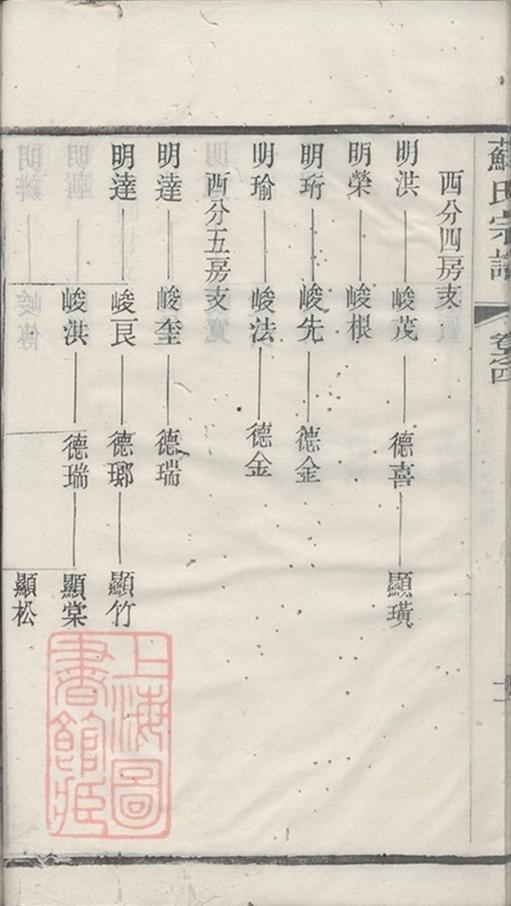 蘇氏宗譜
卷之四
西分四房支
明洪 峻茂 德喜 顯璜
明榮 峻根
明珩 峻先 德金
明瑜 峻法 德金
西分五房支
明達 峻奎 德瑞
明達 峻良 德瑯 顯竹
峻淇 德瑞 顯棠
顯松
上海圖書館藏